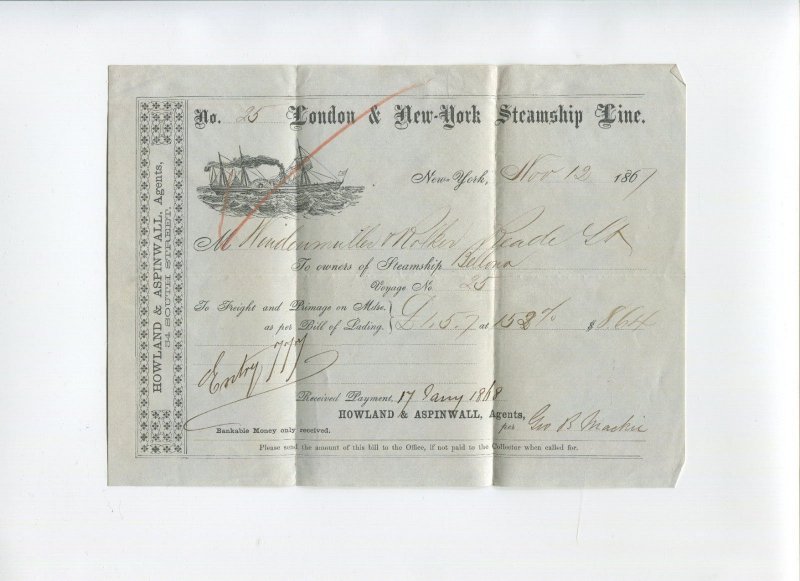 HOWLAND & ASPINWALL, Agents,
54 SOUTH STREET.
No. 25 London & New-York Steamship Line.
New-York, Nov 12 1867
M Windenmuller & Rolker Reade St
To owners of Steamship Bellona
Voyage No. 25
To Freight and Primage on Mdse.
as per Bill of Lading. £1.5.7 at 152% $8.64
Entry
Received Payment, 17 Jany 1868
HOWLAND & ASPINWALL, Agents,
Bankable Money only received.
per Geo. B Mackie
Please send the amount of this bill to the Office, if not paid to the Collector when called for.